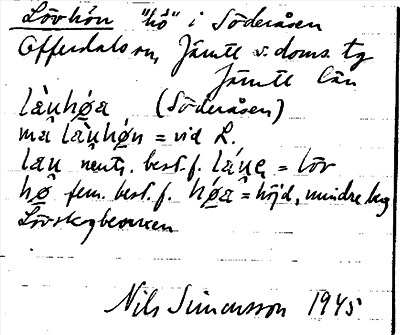 Lövhön "hö" i Söderåsen
Offerdals sn, Jämtl v. doms. tg
Jämtl län
làu̯hø̀a (Söderåsen)
mä làu̯høn = vid L.
lau̯ neutr. best. f. láu̯e = löv
hø fem. best. f. hø̀a = höjd, mindre berg
Nils Simonsson 1945